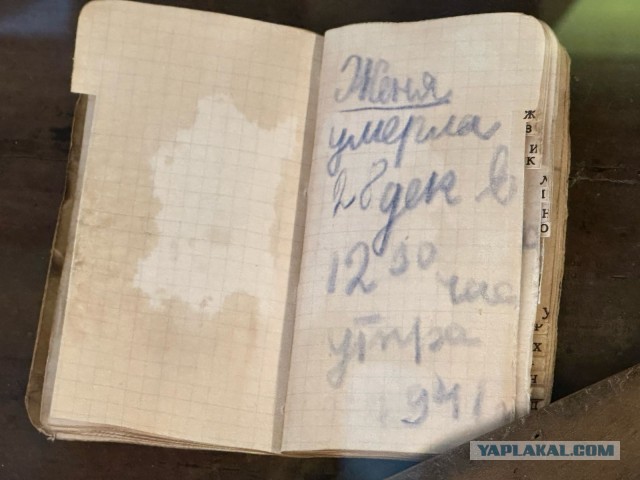 Женя
умерла
28 дек в
12 30
час
утра
1941
Ж
З
И
К
Л
М
Н
О
У
Х
YAPLAKAL.COM